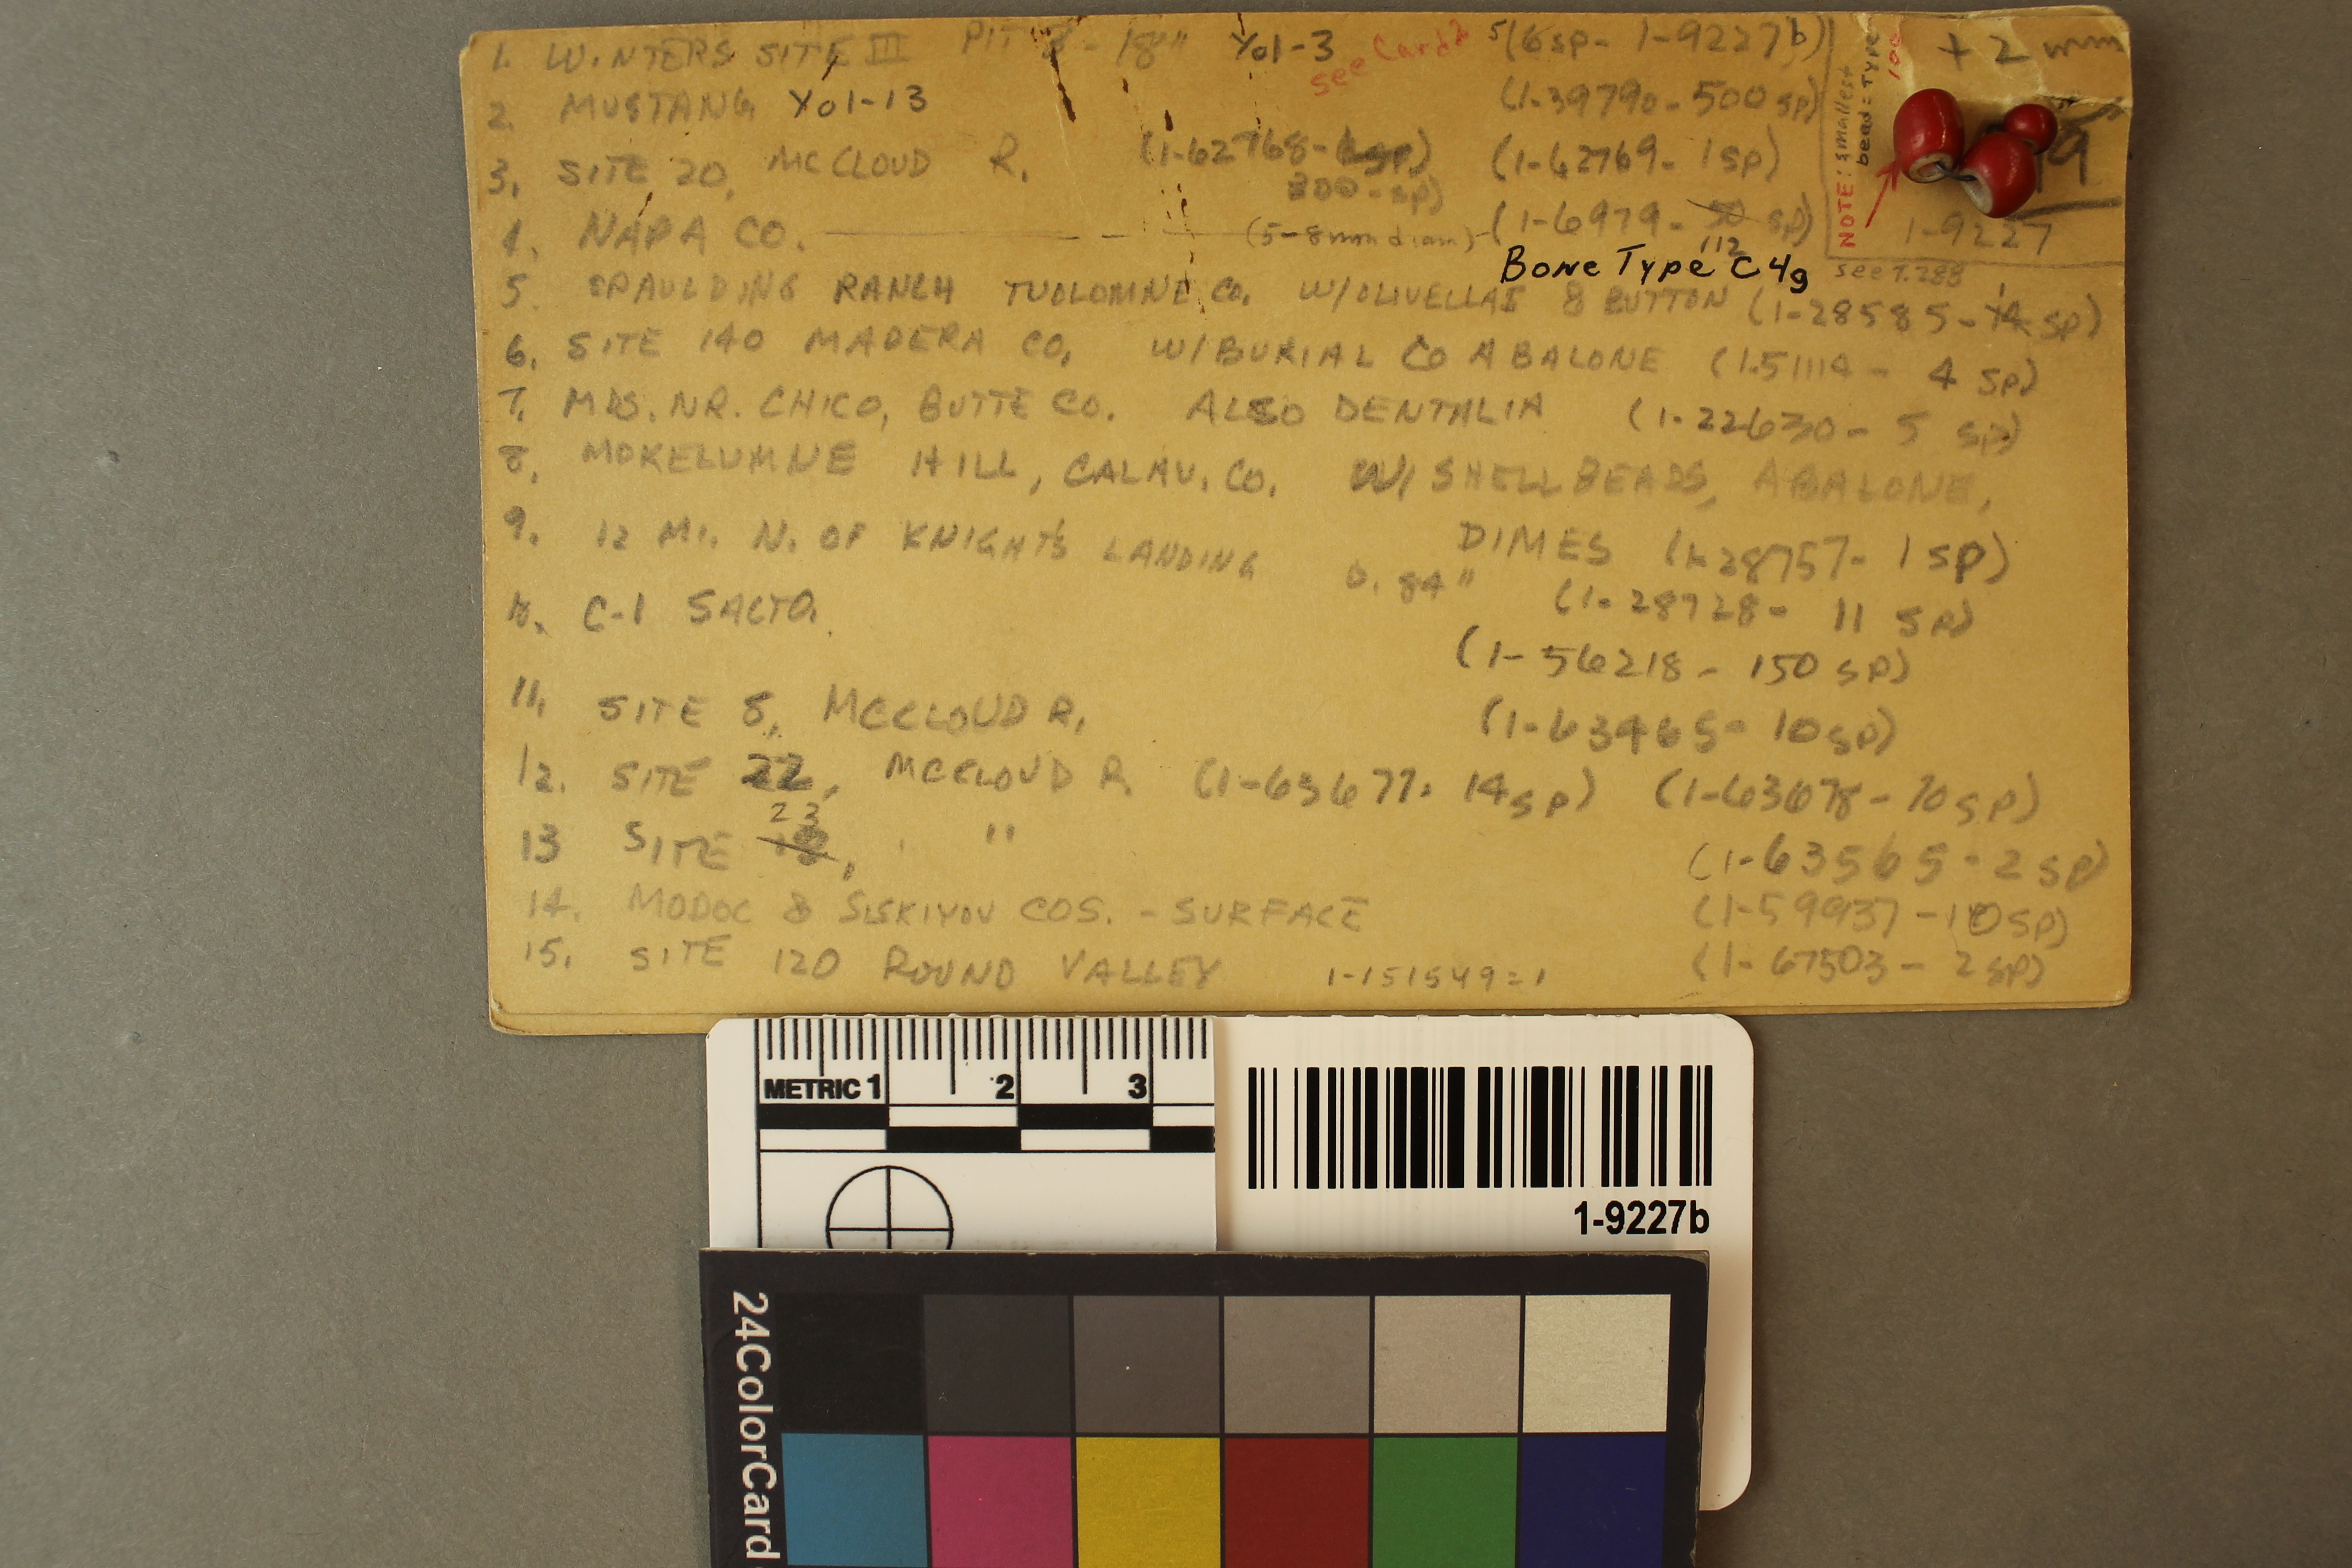 1. WINTERS SITE III PIT 3 - 18" Yol-3 see Card 2 5(6sp- 1-9227b)
2. MUSTANG Yol-13 (1-39790-500 sp)
3. SITE 20, MCCLOUD R. (1-62768- 200-sp) (1-62769- 1sp)
4. NAPA CO. (5-8mm diam)-(1-6979- 50 sp)
112
Bone Type C4g
5. SPAULDING RANCH TUOLOMNE CO. W/OLIVELLAS & BUTTON (1-28585- sp)
6. SITE 140 MADERA CO. W/BURIAL CO ABALONE (1-51114- 4 SP)
7. MDS. NR. CHICO, BUTTE CO. ALSO DENTALIA (1-22630- 5 sp)
8. MOKELUMNE HILL, CALAV. CO. W/ SHELLBEADS, ABALONE,
DIMES (1-28757- 1 sp)
9. 12 MI. N. OF KNIGHT'S LANDING D. 84" (1-28728- 11 SP)
C-1 SACTO. (1-56218- 150 sp)
11. SITE 5, MCCLOUD R. (1-63465- 10sp)
12. SITE 22, MCCLOUD R. (1-63677- 14sp) (1-63678-70sp)
23
13 SITE , " (1-63565-2sp)
14. MODOC & SISKIYOU COS. - SURFACE (1-59937-10sp)
15. SITE 120 ROUND VALLEY 1-151549=1 (1-67503- 2sp)
NOTE: smallest
bead = Type
100
+ 2 mm
1-9227
see T. 288
METRIC 1 2 3
1-9227b
24ColorCard